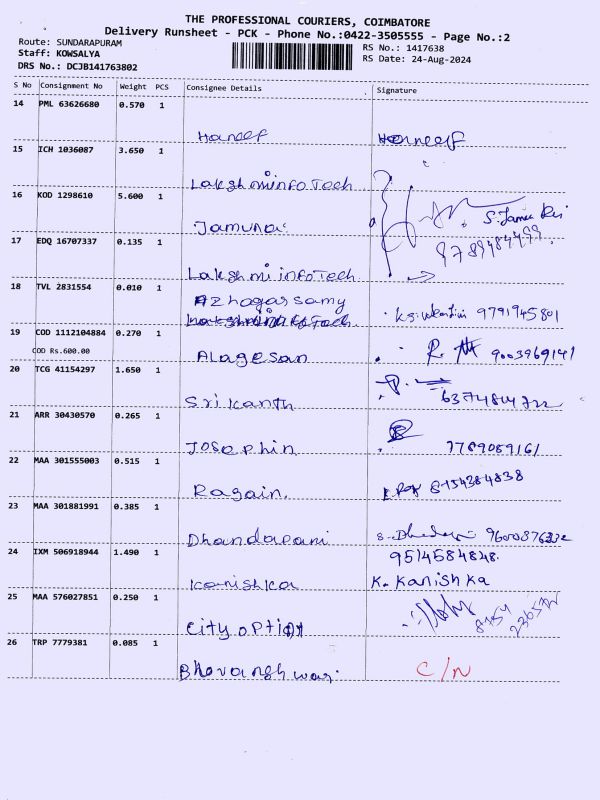 THE PROFESSIONAL COURIERS, COIMBATORE
Delivery Runsheet - PCK - Phone No.:0422-3505555 - Page No.:2
Route: SUNDARAPURAM RS No.: 1417638
Staff: KOWSALYA RS Date: 24-Aug-2024
DRS No.: DCJB141763802
S No Consignment No Weight PCS Consignee Details Signature
14 PML 63626680 0.570 1
Haneef Haneef
15 ICH 1036087 3.650 1
Lakshminfo Tech
16 KOD 1298610 5.600 1
Jamuna
9789484499
17 EDQ 16707337 0.135 1
Lakshmi info Tech
18 TVL 2831554 0.010 1
Azhagarsamy
9791945801
19 COD 1112104884 0.270 1
COD Rs.600.00
Alagesan 9003969141
20 TCG 41154297 1.650 1
Srikanth
21 ARR 30430570 0.265 1
Josephin 7789089161
22 MAA 301555003 0.515 1
Ragain.
23 MAA 301881991 0.385 1
Dhandapani
24 IXM 506918944 1.490 1 9514584848.
Kanishka K. Kanishka
25 MAA 576027851 0.250 1
City option
26 TRP 7779381 0.085 1
Bhovaneshwari C/N